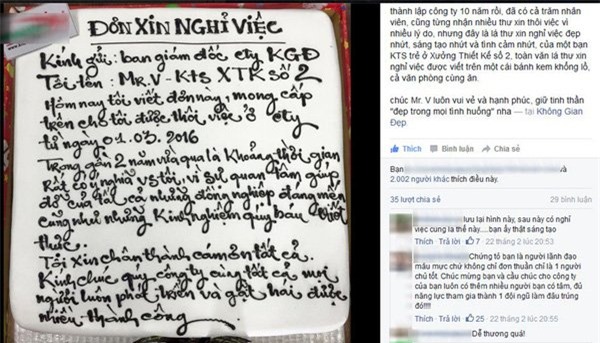 ĐƠN XIN NGHỈ VIỆC
Kính gửi: ban giám đốc cty KGĐ
Tôi tên: MR.V - KTS XTK số 2
Hôm nay tôi viết đơn này, mong cấp
trên cho tôi được thôi việc ở cty
từ ngày: 01.03.2016
Trong gần 2 năm vừa qua là khoảng thời gian
rất có ý nghĩa vs tôi, vì sự quan tâm giúp
đỡ của tất cả những đồng nghiệp đáng mến
cũng như những kinh nghiệm quý báu
thức.
Tôi xin chân thành cám ơn tất cả.
Kính chúc quý công ty cùng tất cả mọi
người luôn phát triển và gặt hái được
nhiều thành công
thành lập công ty 10 năm rồi, đã có cả trăm nhân
viên, cũng từng nhận nhiều thư xin thôi việc vì
nhiều lý do, nhưng đây là lá thư xin nghỉ việc đẹp
nhứt, sáng tạo nhứt và tình cảm nhứt, của một bạn
KTS trẻ ở Xưởng Thiết Kế số 2, toàn văn lá thư xin
nghỉ việc được viết trên một cái bánh kem khổng lồ,
cả văn phòng cùng ăn.
chúc Mr. V luôn vui vẻ và hạnh phúc, giữ tinh thần
"đẹp trong mọi tình huống" nha — tại Không Gian
Đẹp
Thích Bình luận Chia sẻ
Bạn và
2.002 người khác thích điều này.
35 lượt chia sẻ 29 bình luận
lưu lại hình này, sau này có nghỉ
việc cung la thế này.....bạn ấy thật sáng tạo
Thích · Trả lời · 7 · 22 tháng 2 lúc 20:53
Chứng tỏ bạn là người lãnh đạo
mẫu mực chứ không chỉ đơn thuần chỉ là 1 người
chủ tốt. Chúc mừng bạn và cầu chúc cho công ty
của bạn luôn có thêm nhiều người bạn có tâm, đủ
năng lực tham gia thành 1 đội ngũ làm đâu trúng
đó!!!!
Thích · Trả lời · 25 · 22 tháng 2 lúc 20:55
Dễ thương quá!